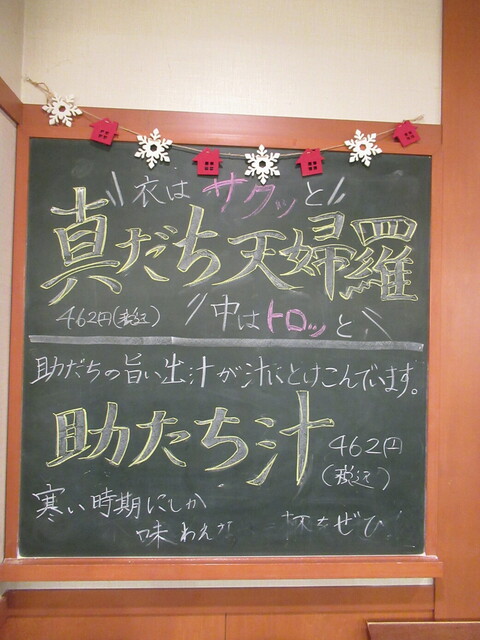 衣はサクッと
真だち天婦羅
462円(税込)
中はトロッと
助だちの旨い出汁が汁にとけこんでいます。
助だち汁
462円
(税込)
寒い時期にしか
味わえな 一杯をぜひ!